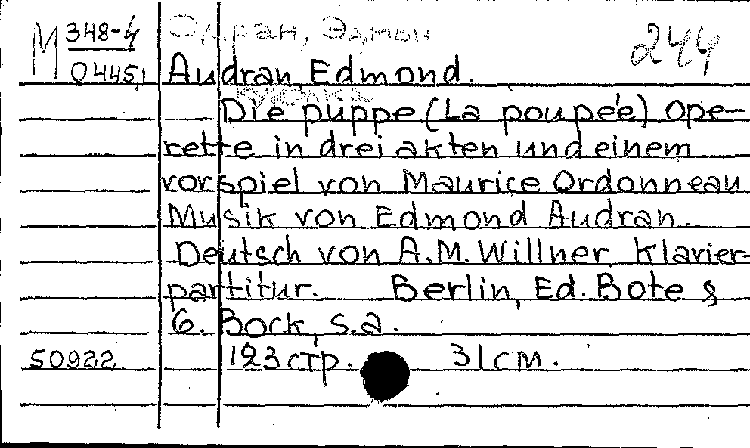 М 348-4 Одран, Эдмон 244
0445, Audran, Edmond.
Die puppe (La poupée) Ope-
rette in drei akten und einem
vorspiel von Maurice Ordonneau
Musik von Edmond Audran.
Deutsch von A.M. Willner Klavier-
partitur. Berlin, Ed. Bote &
G. Bock, s.a.
50922 123 стр. 31 см.